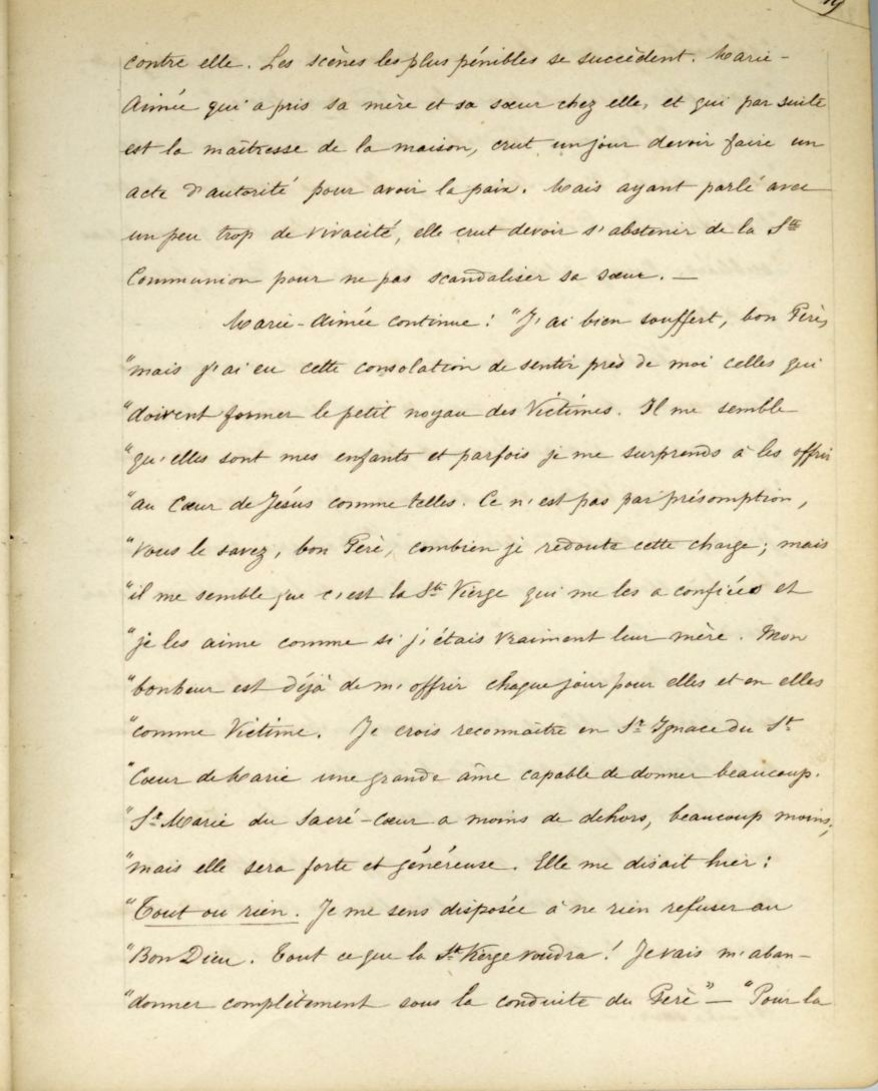 19
contre elle. Les scènes les plus pénibles se succèdent. Marie-
Aimée qui a pris sa mère et sa sœur chez elle, et qui par suite
est la maîtresse de la maison, crut un jour devoir faire un
acte d'autorité pour avoir la paix. Mais ayant parlé avec
un peu trop de vivacité, elle crut devoir s'abstenir de la Ste
Communion pour ne pas scandaliser sa sœur. —
Marie-Aimée continue : "J'ai bien souffert, bon Père,
"mais j'ai eu cette consolation de sentir près de moi celles qui
"doivent former le petit noyau des Victimes. Il me semble
"qu'elles sont mes enfants et parfois je me surprends à les offrir
"au Cœur de Jésus comme telles. Ce n'est pas par présomption,
"vous le savez, bon Père, combien je redoute cette charge ; mais
"il me semble que c'est la Ste Vierge qui me les a confiées et
"je les aime comme si j'étais vraiment leur mère. Mon
"bonheur est déjà de m'offrir chaque jour pour elles et en elles
"comme Victime. Je crois reconnaître en Sr Ignace du St
"Cœur de Marie une grande âme capable de donner beaucoup.
"Sr Marie du Sacré-Cœur a moins de dehors, beaucoup moins,
"mais elle sera forte et généreuse. Elle me disait hier :
"Tout ou rien. Je me sens disposée à ne rien refuser au
"Bon Dieu. Tout ce que la Ste Vierge voudra ! Je vais m'aban-
"donner complètement sous la conduite du Père" — "Pour la